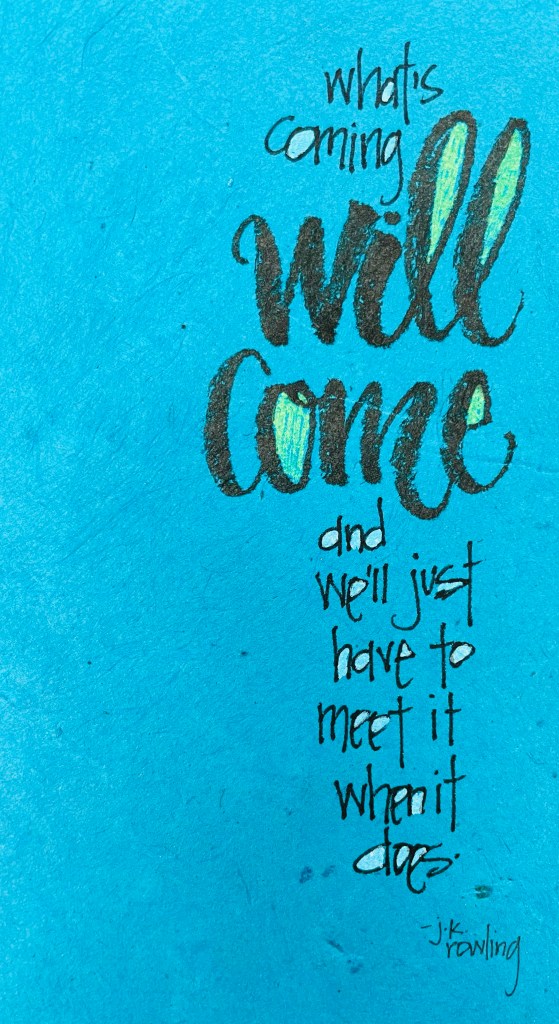 what's
coming
will
come
and
we'll just
have to
meet it
when it
does.
-j.k.
rowling